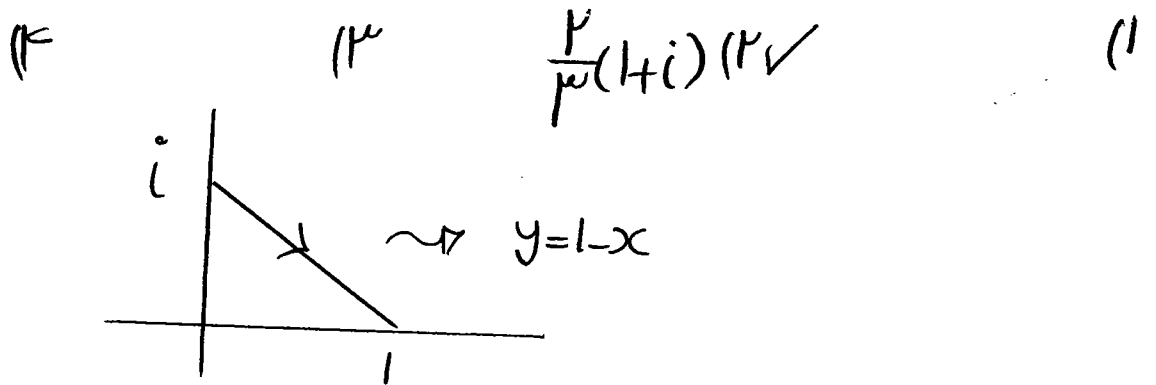 (۱ (۲ ۲/۳(1+i) ✓ (۳ (۴
i
⇝ y=1-x
1